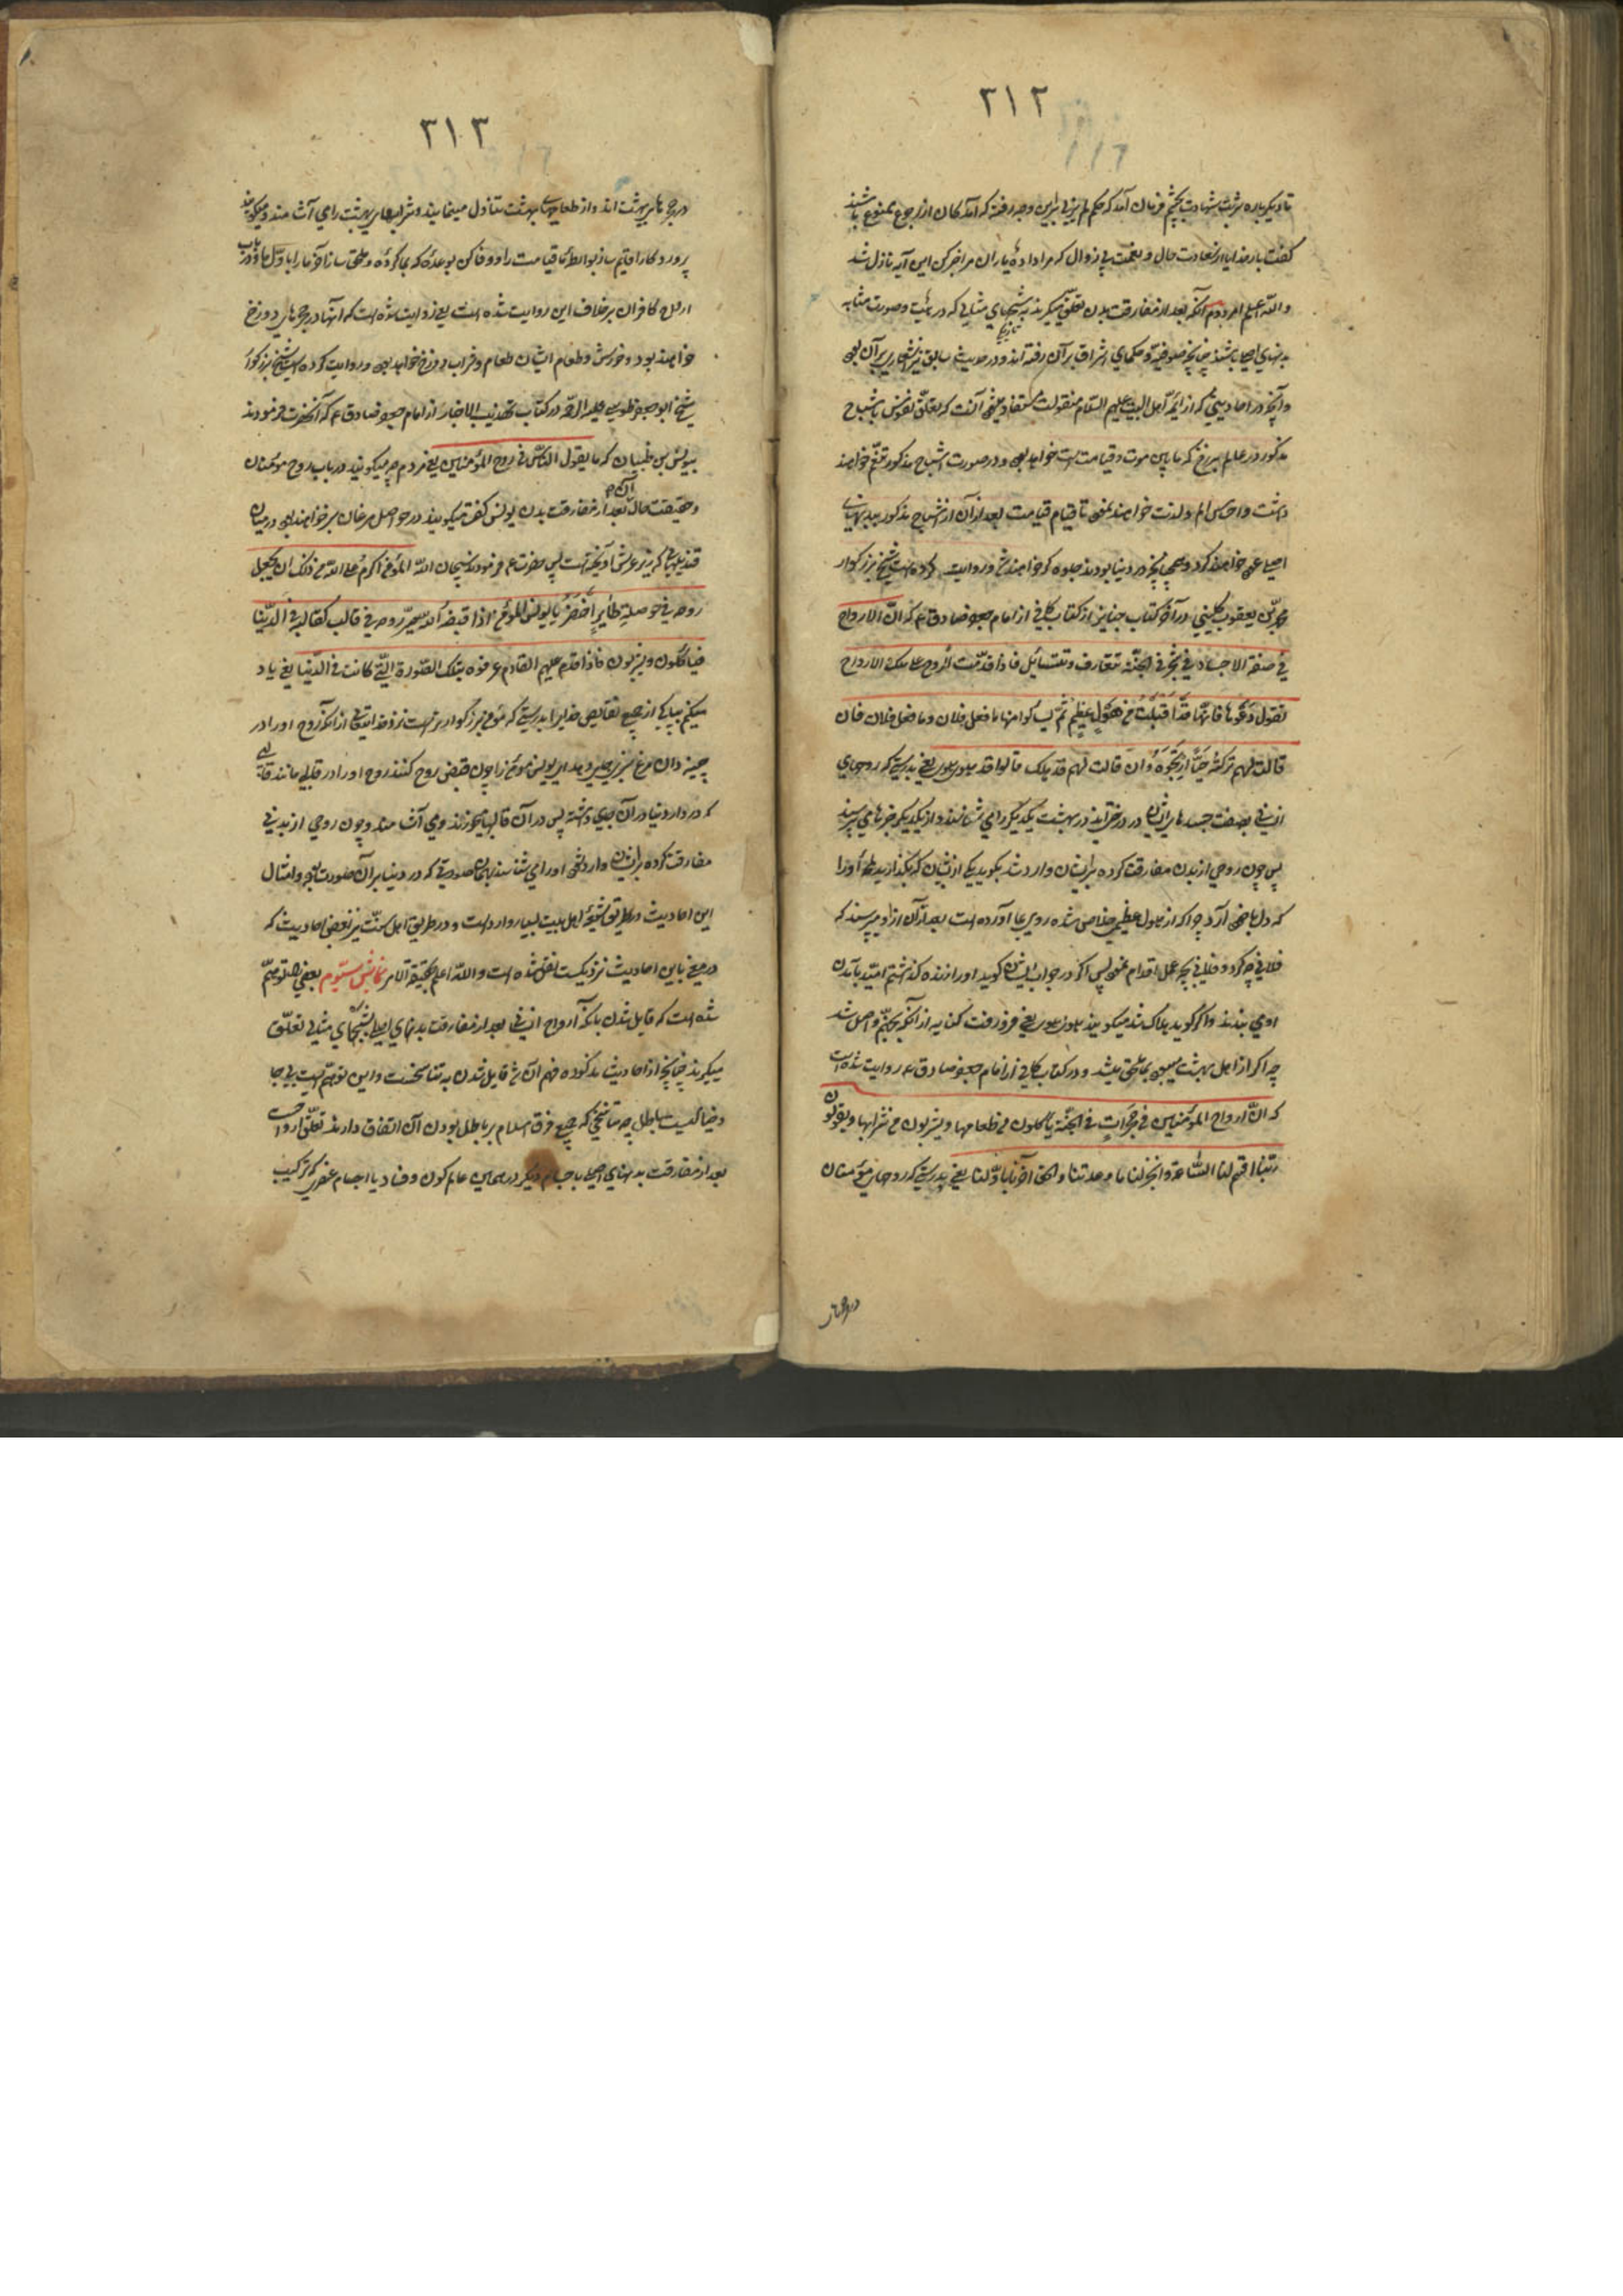 ۲۱۲
تا دیگرباره شربت شهادت بچشم فرمان آمد که حکم لم یزلی براین وجه رفته که آمدکان از رجوع ممنوع باشند
گفت بار خدایا از سعادت حال و نعمت بی زوال که مرا داده یاران مرا خبر کن این آیه نازل شد
والله اعلم امر دوم آنکه بعد از مفارقت بدن تعلق میگیرند به شبحهای مثالی که در هیئت و صورت مشابه
بدنهای اصلی باشند چنانچه صوفیه و حکمای اشراق بر آن رفته اند و در حدیث سابق نیز اشعاری بر آن بود
و آنچه در احادیثی که از ائمه اهل البیت علیهم السلام منقولست مستفاد میشود آنست که تعلق نفوس باشباح
مذکور در عالم برزخ که مابین موت و قیامت است خواهد بود و در صورت اشباح مذکور تنعم خواهند
داشت و احساس الم و لذت خواهند نمود تا قیام قیامت بعد از آن از اشباح مذکور ببدنهای
اصلی عود خواهند کرد و همچنانچه در دنیا بودند جلوه گر خواهند شد و روایت کرده است شیخ بزرگوار
محمد بن یعقوب کلینی در آخر کتاب جنایز از کتاب کافی از امام جعفر صادق ع که ان الارواح
فی صفة الاجساد فی شجر فی الجنة تتعارف و تتسائل فاذا قدمت الروح علی تلک الارواح
تقول دعوها فانها قد اقبلت من هول عظیم ثم یسئلونها ما فعل فلان و ما فعل فلان فان
قالت لهم ترکته حیا ارتجوه و ان قالت لهم قد هلک قالوا قد هوی هوی یعنی بدرستی که روحهای
انسانی بصفت جسدهای ایشان در درختانند در بهشت یکدیگر را می شناسند و از یکدیگر خبرها می پرسند
پس چون روحی از بدن مفارقت کرده بر ایشان وارد شد بگوید یکی از ایشان که بگذارید او را
که دل بجای آرد چرا که از هول عظیمی خلاص شده روی بما آورده است بعد از آن از او میپرسند که
فلانی چه کرد و فلانی بچه عمل اقدام نمود پس اگر در جواب ایشان گوید او را زنده گذاشتم امید بآمدن
او می بندند و اگر گوید هلاک شد میگویند هوی هوی یعنی فرو رفت کنایه از آنکه بجهنم واصل شد
چه اگر از اهل بهشت میبود بما ملحق میشد و در کتاب کافی از امام جعفر صادق ع روایت شده است
که ان ارواح المؤمنین فی حجرات فی الجنة یاکلون من طعامها و یشربون من شرابها و یقولون
ربنا اقم لنا الساعة و انجز لنا ما وعدتنا و الحق آخرنا باولنا یعنی بدرستی که روحهای مؤمنان
در حجرهای
۲۱۳
در حجرهای بهشت اند و از طعامهای بهشت تناول مینمایند و شرابهای بهشت را می آشامند و میگویند
پروردگارا قایم ساز برای ما قیامت را و وفا کن بوعده که بما کرده و ملحق ساز آخر ما را باول ما و در باب
ارواح کافران بر خلاف این روایت شده است یعنی روایت شده است که آنها در حجرهای دوزخ
خواهند بود و خورش و طعام ایشان طعام و شراب دوزخ خواهد بود و روایت کرده است شیخ بزرگوار
شیخ ابو جعفر طوسی علیه الرحمه در کتاب تهذیب الاخبار از امام جعفر صادق ع که آنحضرت فرمودند
بیونس بن ظبیان که ما یقول الناس فی روح المؤمنین یعنی مردم چه میگویند در باب روح مؤمنان
و حقیقت حال آن بعد از مفارقت بدن یونس گفت میگویند در حواصل مرغان سبز خواهند بود در میان
قندیلهائی که زیر عرش آویخته است پس حضرت ع فرمودند سبحان الله المؤمن اکرم علی الله من ذلک ان یجعل
روحه فی حوصلة طایر اخضر یا یونس المؤمن اذا قبضه الله صیر روحه فی قالب کقالبه فی الدنیا
فیاکلون و یشربون فاذا قدم علیهم القادم عرفوه بتلک الصورة التی کانت فی الدنیا یعنی یاد
میکنم بپاکی از جمیع نقایص خدایرا بدرستی که مؤمن بزرگوارتر است نزد خدایتعالی از آنکه روح او را در
چینه دان مرغ سبزی  ای یونس مؤمن را چون قبض روح کنند روح او را در قالبی مانند قالبی
که در دار دنیا در آن جای داشته پس در آن قالبها میخورند و می آشامند و چون روحی از بدنی
مفارقت کرده بر ایشان وارد شود او را می شناسند بهمان صورتی که در دنیا بر آن صورت بود و امثال
این احادیث در طریق شیعه اهل بیت بسیار وارد است و در طریق اهل سنت نیز بعضی احادیث که
در معنی باین احادیث نزدیکست نقل شده است والله اعلم بحقیقة الامر نمایش سیوم بعضی را توهم
شده است که قایل شدن بانکه ارواح انسانی بعد از مفارقت بدنهای اصلی بشبحهای مثالی تعلق
میگیرند چنانچه از احادیث مذکوره فهم آن شد قایل شدن به تناسخست و این توهمیست بی جا
و خیالیست باطل چه تناسخی که جمیع فرق اسلام بر باطل بودن آن اتفاق دارند تعلق ارواحست
بعد از مفارقت بدنهای اصلی باجسام دیگر در همین عالم کون و فساد یا اجسام عنصری که ترکیب